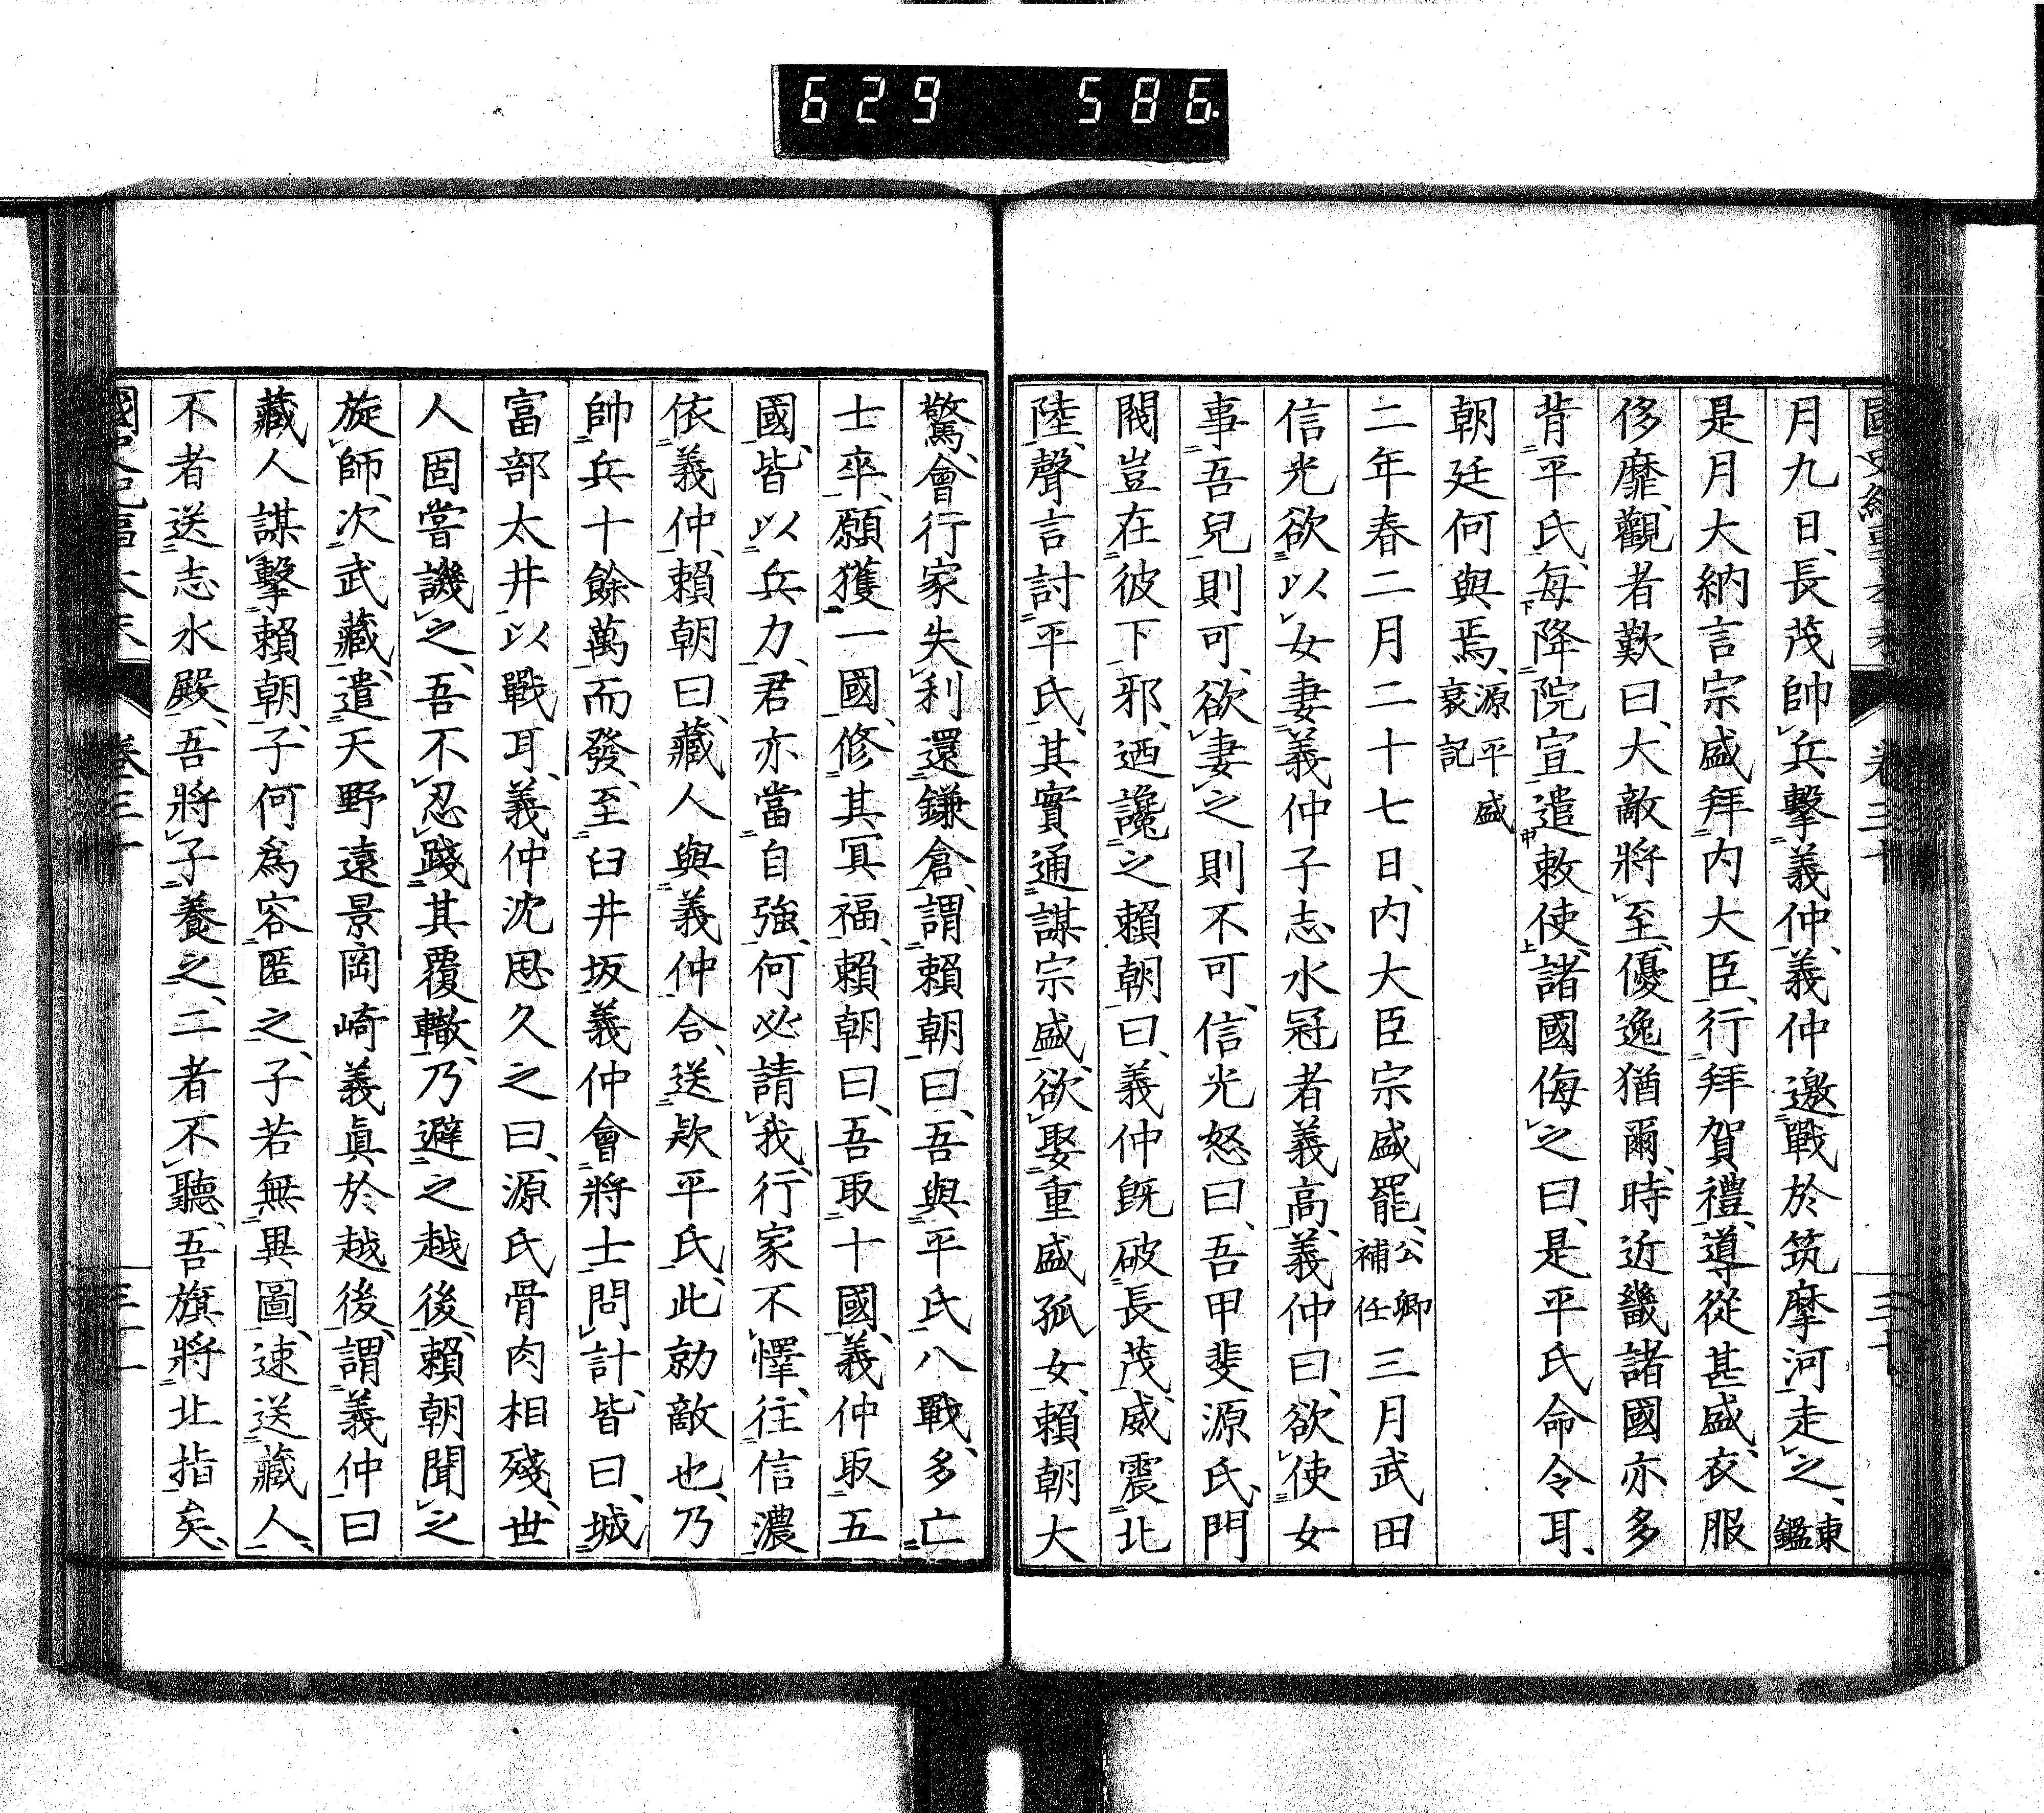 629 586.
月九日、長茂帥兵擊義仲、義仲邀戰於筑摩河走之、東鑑
是月大納言宗盛拜內大臣、行拜賀禮、導從甚盛、衣服
侈靡、觀者歎曰、大敵將至、優逸猶爾、時近畿諸國亦多
背平氏、每降院宣遣敕使、諸國侮之曰、是平氏命令耳、
朝廷何與焉、源平盛衰記
二年春二月二十七日、內大臣宗盛罷、公卿補任三月武田
信光欲以女妻義仲子志水冠者義高、義仲曰、欲使女
事吾兒則可、欲妻之則不可、信光怒曰、吾甲斐源氏、門
閥豈在彼下邪、迺讒之賴朝曰、義仲既破長茂、威震北
陸、聲言討平氏、其實通謀宗盛、欲娶重盛孤女、賴朝大
驚、會行家失利還鎌倉、謂賴朝曰、吾與平氏八戰、多亡
士卒、願獲一國、修其冥福、賴朝曰、吾取十國、義仲取五
國、皆以兵力、君亦當自強、何必請我、行家不懌、往信濃
依義仲、賴朝曰、藏人與義仲合、送欵平氏、此勍敵也、乃
帥兵十餘萬而發、至臼井坂、義仲會將士問計、皆曰、城
富部太井以戰耳、義仲沈思久之曰、源氏骨肉相殘、世
人固嘗譏之、吾不忍踐其覆轍、乃避之越後、賴朝聞之
旋師、次武藏、遣天野遠景岡崎義眞於越後、謂義仲曰
藏人謀擊賴朝、子何爲容匿之、子若無異圖、速送藏人、
不者送志水殿、吾將子養之、二者不聽、吾旗將北指矣、
卷三十 三十一